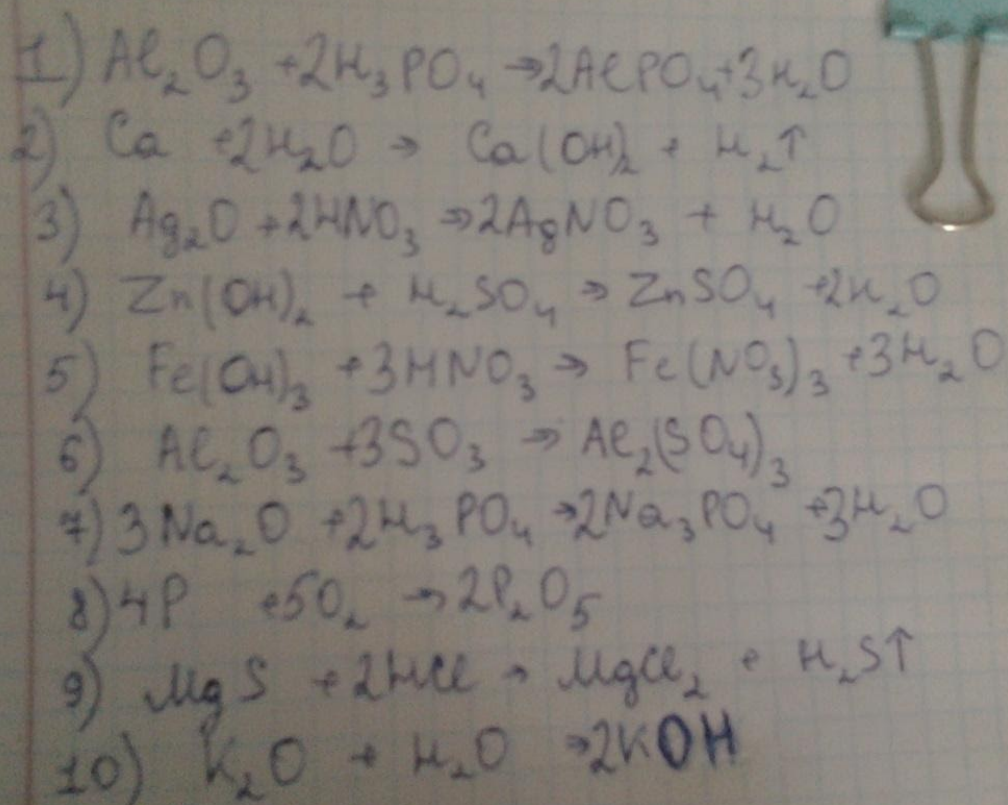 1) Al₂O₃ +2H₃PO₄ →2AlPO₄+3H₂O
2) Ca +2H₂O → Ca(OH)₂ + H₂↑
3) Ag₂O +2HNO₃ →2AgNO₃ + H₂O
4) Zn(OH)₂ + H₂SO₄ → ZnSO₄ +2H₂O
5) Fe(OH)₃ +3HNO₃ → Fe(NO₃)₃ +3H₂O
6) Al₂O₃ +3SO₃ → Al₂(SO₄)₃
7) 3Na₂O +2H₃PO₄ →2Na₃PO₄ +3H₂O
8) 4P +5O₂ → 2P₂O₅
9) MgS +2HCl → MgCl₂ + H₂S↑
10) K₂O + H₂O →2KOH